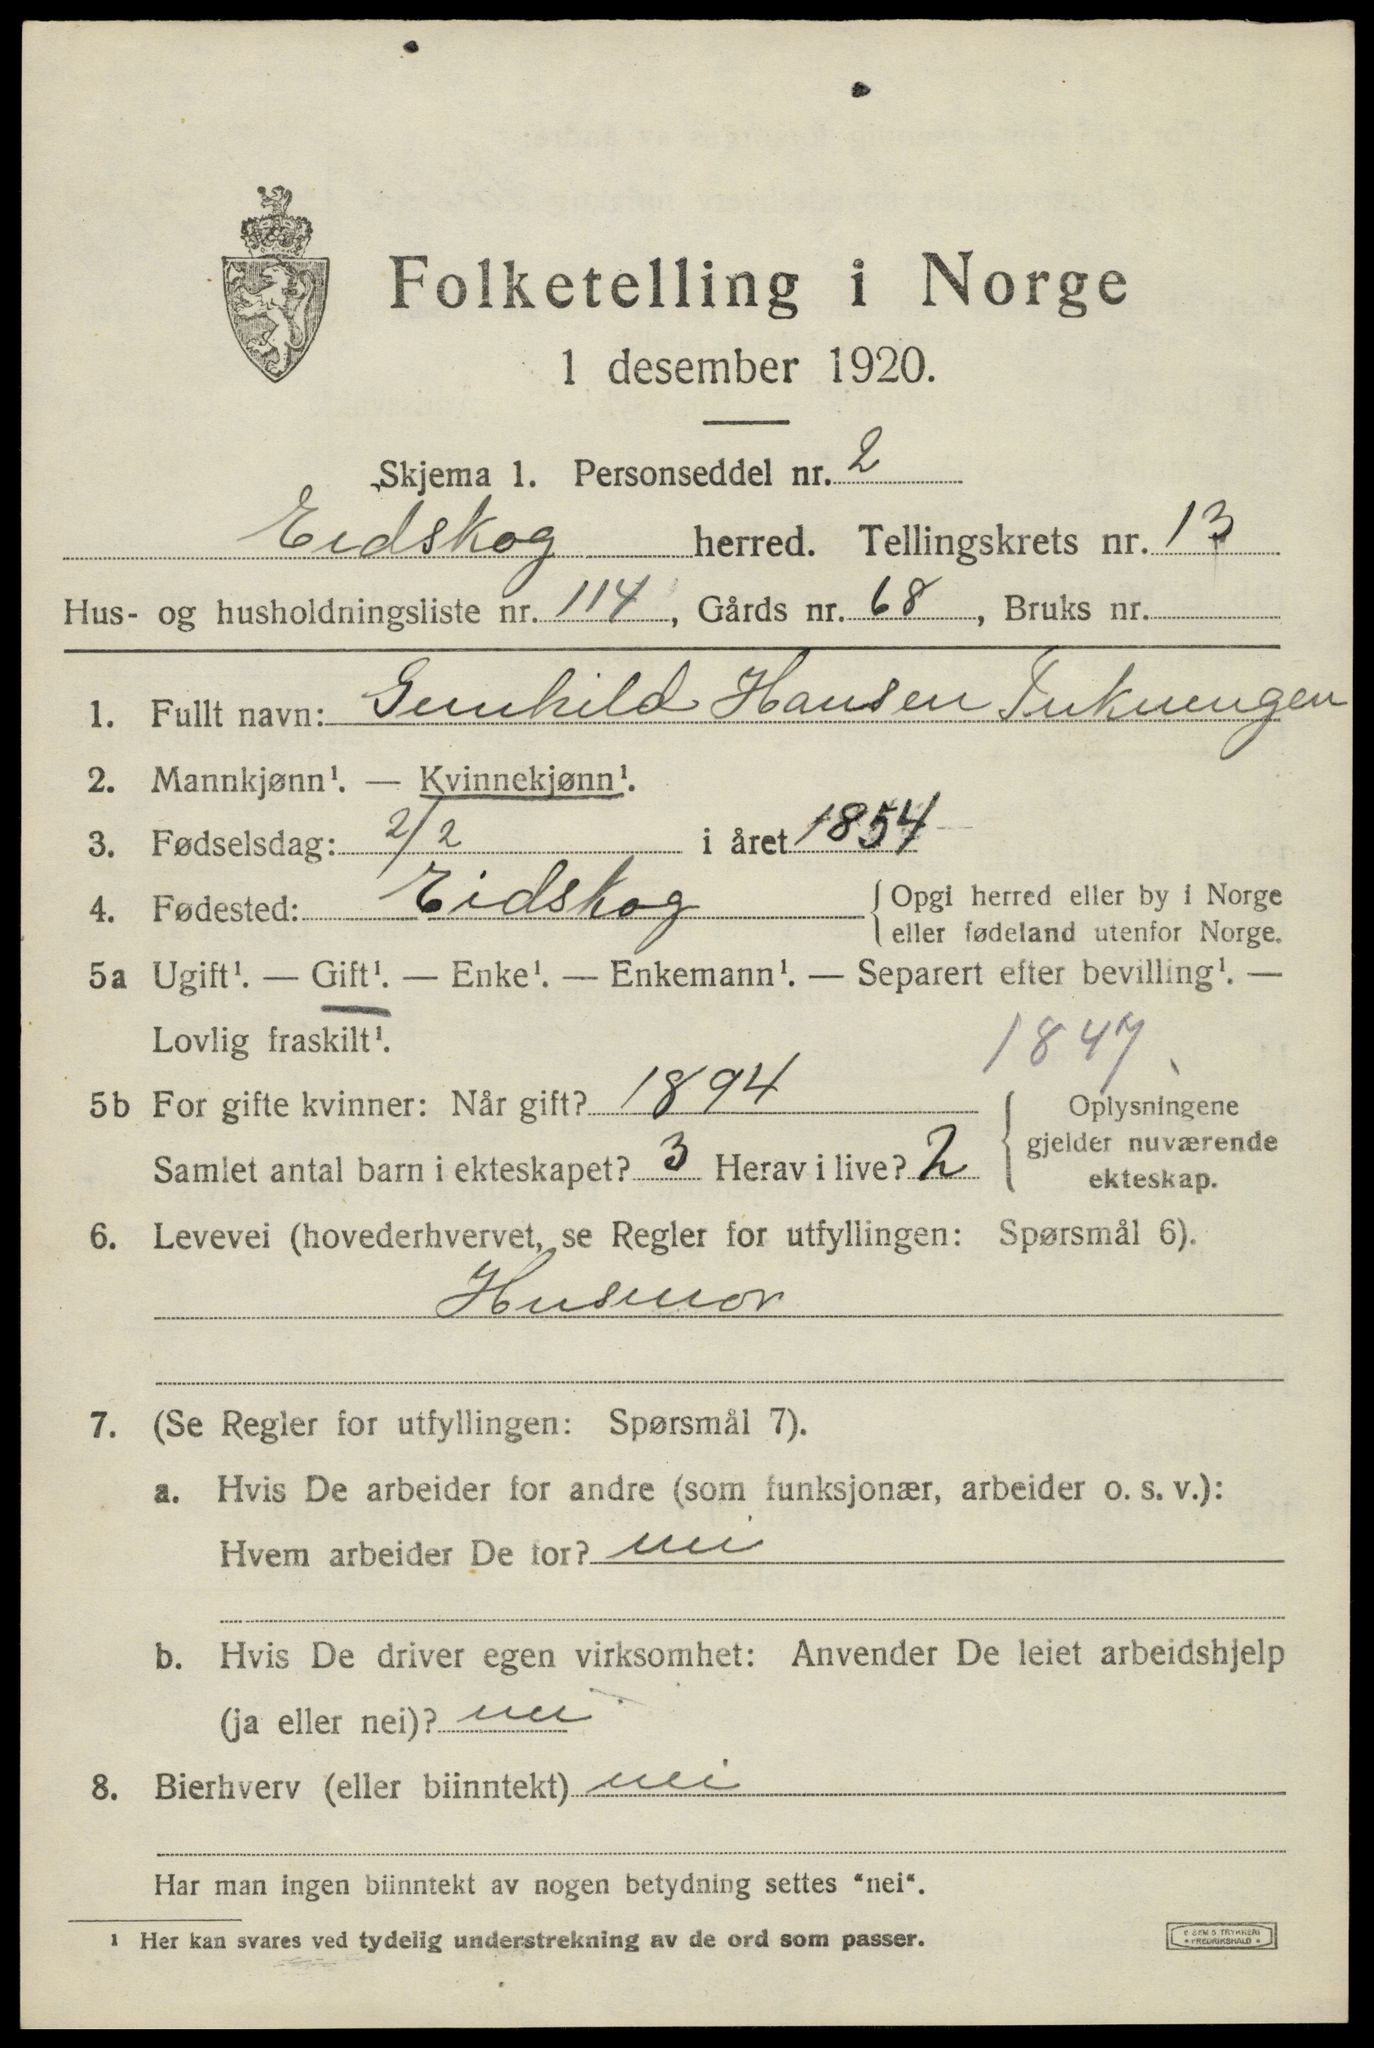 Folketelling i Norge
1 desember 1920.
Skjema 1. Personseddel nr. 2
Eidskog herred. Tellingskrets nr. 13
Hus- og husholdningsliste nr. 114, Gårds nr. 68, Bruks nr.
1. Fullt navn: Gunhild Hansen
2. Mannkjønn¹. — Kvinnekjønn¹.
3. Fødselsdag: 2/2 i året 1854
4. Fødested: Eidskog { Opgi herred eller by i Norge
eller fødeland utenfor Norge.
5a Ugift¹. — Gift¹. — Enke¹. — Enkemann¹. — Separert efter bevilling¹. —
Lovlig fraskilt¹.
1847
5b For gifte kvinner: Når gift? 1894 { Oplysningene
gjelder nuværende
Samlet antal barn i ekteskapet? 3 Herav i live? 2
ekteskap.
6. Levevei (hovederhvervet, se Regler for utfyllingen: Spørsmål 6).
Husmor
7. (Se Regler for utfyllingen: Spørsmål 7).
a. Hvis De arbeider for andre (som funksjonær, arbeider o. s. v.):
Hvem arbeider De for? nei
b. Hvis De driver egen virksomhet: Anvender De leiet arbeidshjelp
(ja eller nei)? nei
8. Bierhverv (eller biinntekt) nei
Har man ingen biinntekt av nogen betydning settes "nei".
¹ Her kan svares ved tydelig understrekning av de ord som passer.
TRYKKERI
* FREDRIKSHALD *